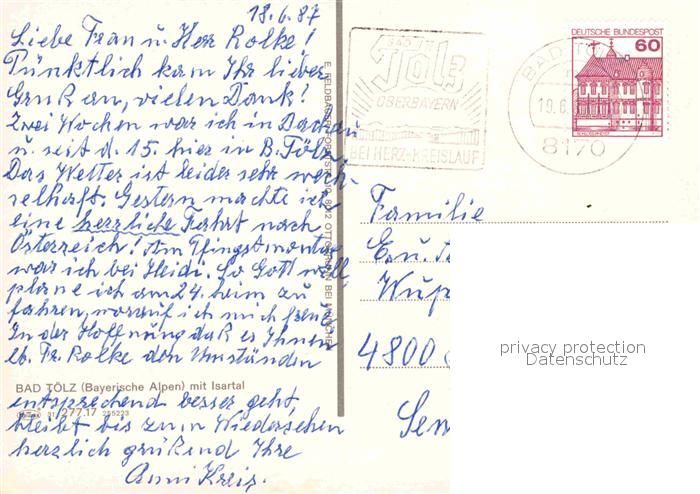 18.6.87
Liebe Frau u. Herr Rolke!
Pünktlich kam Ihr lieber
Gruß an, vielen Dank!
Zwei Wochen war ich in Dachau
u. seit d. 15. hier in B. Tölz.
Das Wetter ist leider sehr wech-
selhaft. Gestern machte ich
eine herrliche Fahrt nach
Österreich! Am Pfingstmontag
war ich bei Heidi. So Gott will,
plane ich am 24. heim zu
fahren, worauf ich mich freue.
In der Hoffnung daß es Ihnen
lb. Fr. Rolke den Umständen
BAD TÖLZ (Bayerische Alpen) mit Isartal
entsprechend besser geht,
277.17 255223
bleibt bis zum Wiedersehen
herzlich grüßend Ihre
Anni Kreis.
BAD
Tölz
OBERBAYERN
BEI HERZ-KREISLAUF
DEUTSCHE BUNDESPOST
60
BAD TÖLZ
19.6.
8170
Familie
4800
privacy protection
Datenschutz